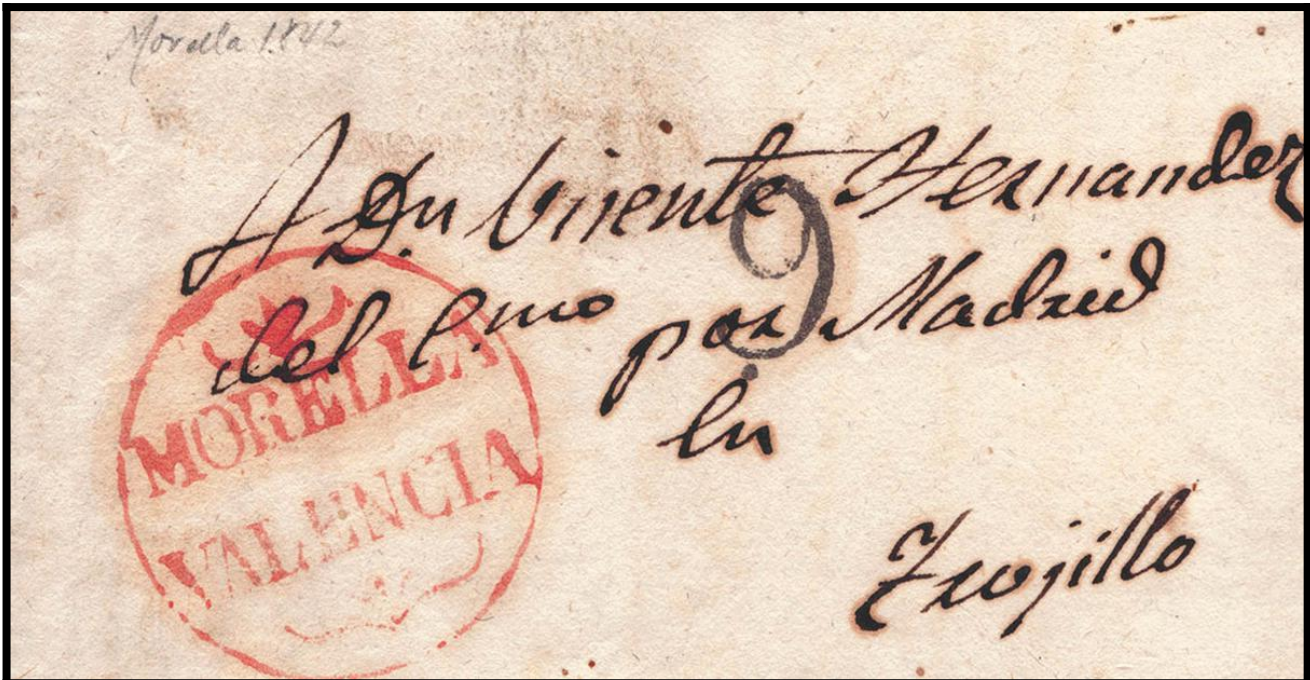 Morella 1842
A Dn Vicente Hernandez
9
del C.mo por Madrid
En
Trujillo
MORELLA
VALENCIA